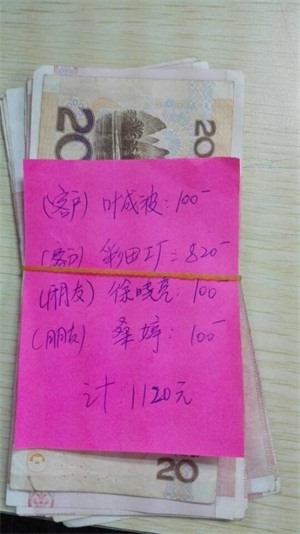 20
20
(客户) 叶成波:100-
(客户) 彩田工厂:820-
(朋友) 徐晓亮:100-
(朋友) 桑婷:100-
计 1120元
20